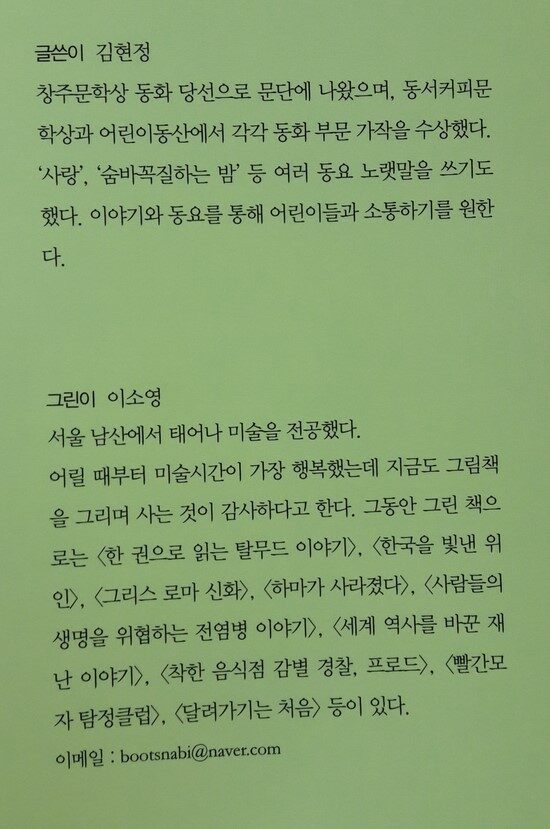 글쓴이 김현정
창주문학상 동화 당선으로 문단에 나왔으며, 동서커피문
학상과 어린이동산에서 각각 동화 부문 가작을 수상했다.
‘사랑’, ‘숨바꼭질하는 밤’ 등 여러 동요 노랫말을 쓰기도
했다. 이야기와 동요를 통해 어린이들과 소통하기를 원한
다.
그린이 이소영
서울 남산에서 태어나 미술을 전공했다.
어릴 때부터 미술시간이 가장 행복했는데 지금도 그림책
을 그리며 사는 것이 감사하다고 한다. 그동안 그린 책으
로는 〈한 권으로 읽는 탈무드 이야기〉, 〈한국을 빛낸 위
인〉, 〈그리스 로마 신화〉, 〈하마가 사라졌다〉, 〈사람들의
생명을 위협하는 전염병 이야기〉, 〈세계 역사를 바꾼 재
난 이야기〉, 〈착한 음식점 감별 경찰, 프로드〉, 〈빨간모
자 탐정클럽〉, 〈달려가기는 처음〉 등이 있다.
이메일 : bootsnabi@naver.com